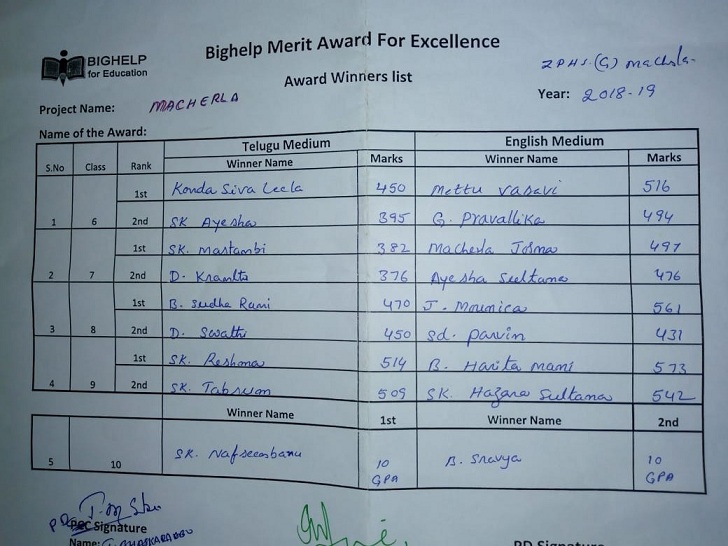 BIGHELP
for Education
Bighelp Merit Award For Excellence
Award Winners list
ZPHS (G) Macherla
Project Name: MACHERLA
Year: 2018-19
Name of the Award:
S.No Class Rank Telugu Medium English Medium
Winner Name Marks Winner Name Marks
1st Konda Siva Leela 450 Mettu Vasavi 516
1 6 2nd SK Ayesha 395 G. Pravallika 494
1st SK. Mastambi 382 Macherla Josna 497
2 7 2nd D. Kranthi 376 Ayesha Sultana 476
1st B. Sudha Rani 470 J. Mounica 561
3 8 2nd D. Swathi 450 Sd. Parvin 431
1st SK. Reshma 514 B. Harita mani 573
4 9 2nd SK. Tabsum 509 SK. Hazara Sultana 542
Winner Name 1st Winner Name 2nd
5 10 SK. Nafseenbanu 10 GPA B. Sravya 10 GPA
Signature
Name:
PD Signature